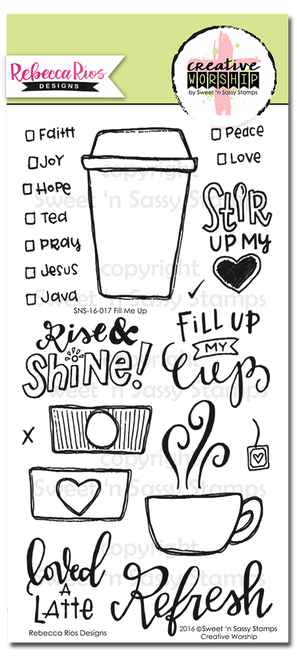 Rebecca Rios
DESIGNS
creative
WORSHIP
by Sweet 'n Sassy Stamps
Faith
Joy
Hope
Tea
Pray
Jesus
Java
Peace
Love
Stir
UP MY
copyright
Sweet 'n Sassy Stamps
SNS-16-017 Fill Me Up
Rise &
SHiNE!
FiLL UP
MY
Cup
X
copyright
Sweet 'n Sassy Stamps
copyright
Sweet 'n Sassy Stamps
loved
A
LATTE
Refresh
Rebecca Rios Designs
2016 ©Sweet 'n Sassy Stamps
Creative Worship